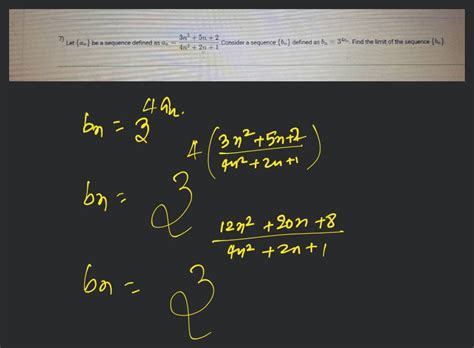 7) Let {aₙ} be a sequence defined as aₙ = (3n² + 5n + 2)/(4n² + 2n + 1). Consider a sequence {bₙ} defined as bₙ = 3^(4aₙ). Find the limit of the sequence {bₙ}.
bn = 3^(4an.)
bn = 3^(4((3n²+5n+2)/(4n²+2n+1)))
bn = 3^((12n²+20n+8)/(4n²+2n+1))